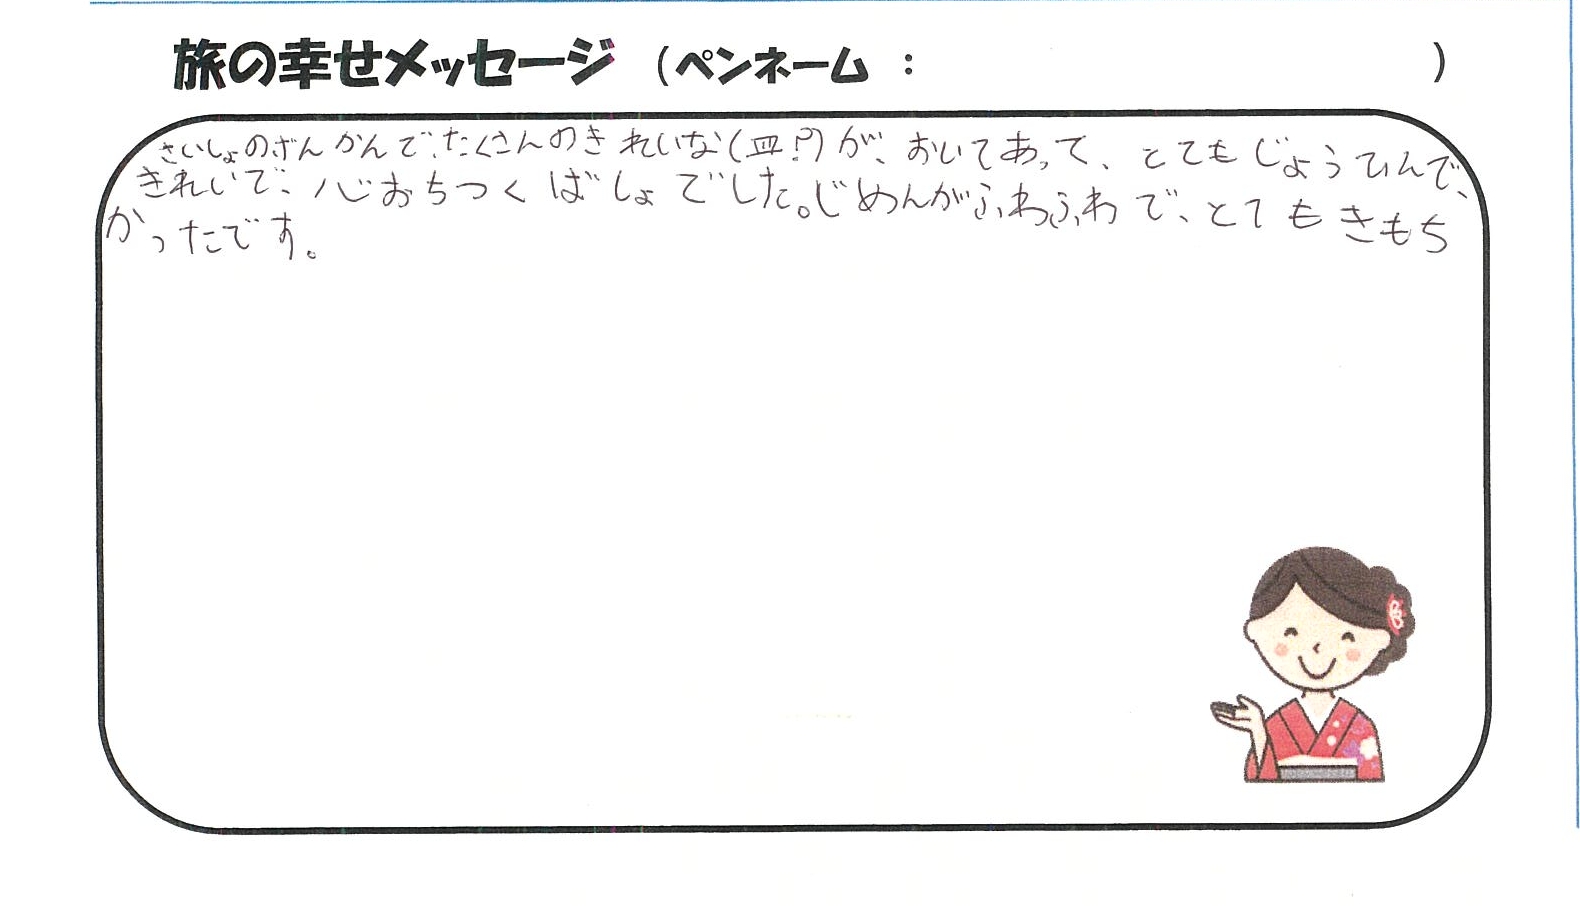 旅の幸せメッセージ (ペンネーム : )
さいしょのざんかんで、たくさんのきれいな(皿?)が、おいてあって、とてもじょうひんで、
きれいで、心おちつくばしょでした。じめんがふわふわで、とてもきもち
かったです。